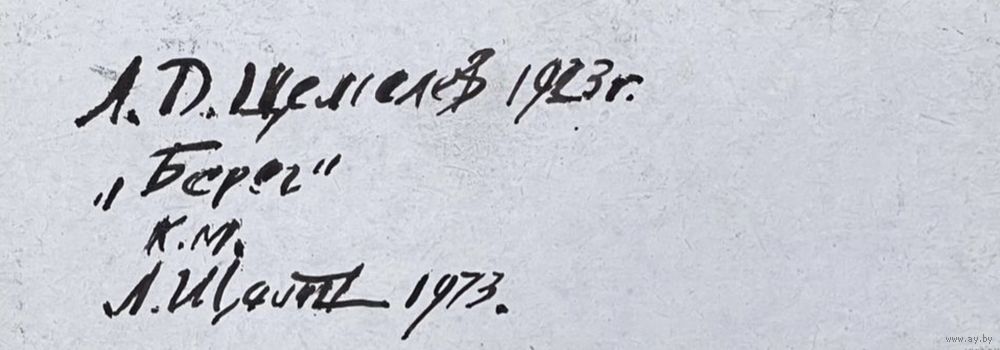 Л. Д. Щемелев 1923 г.
„Берег"
к. м.
Л. 1973.
www.ay.by